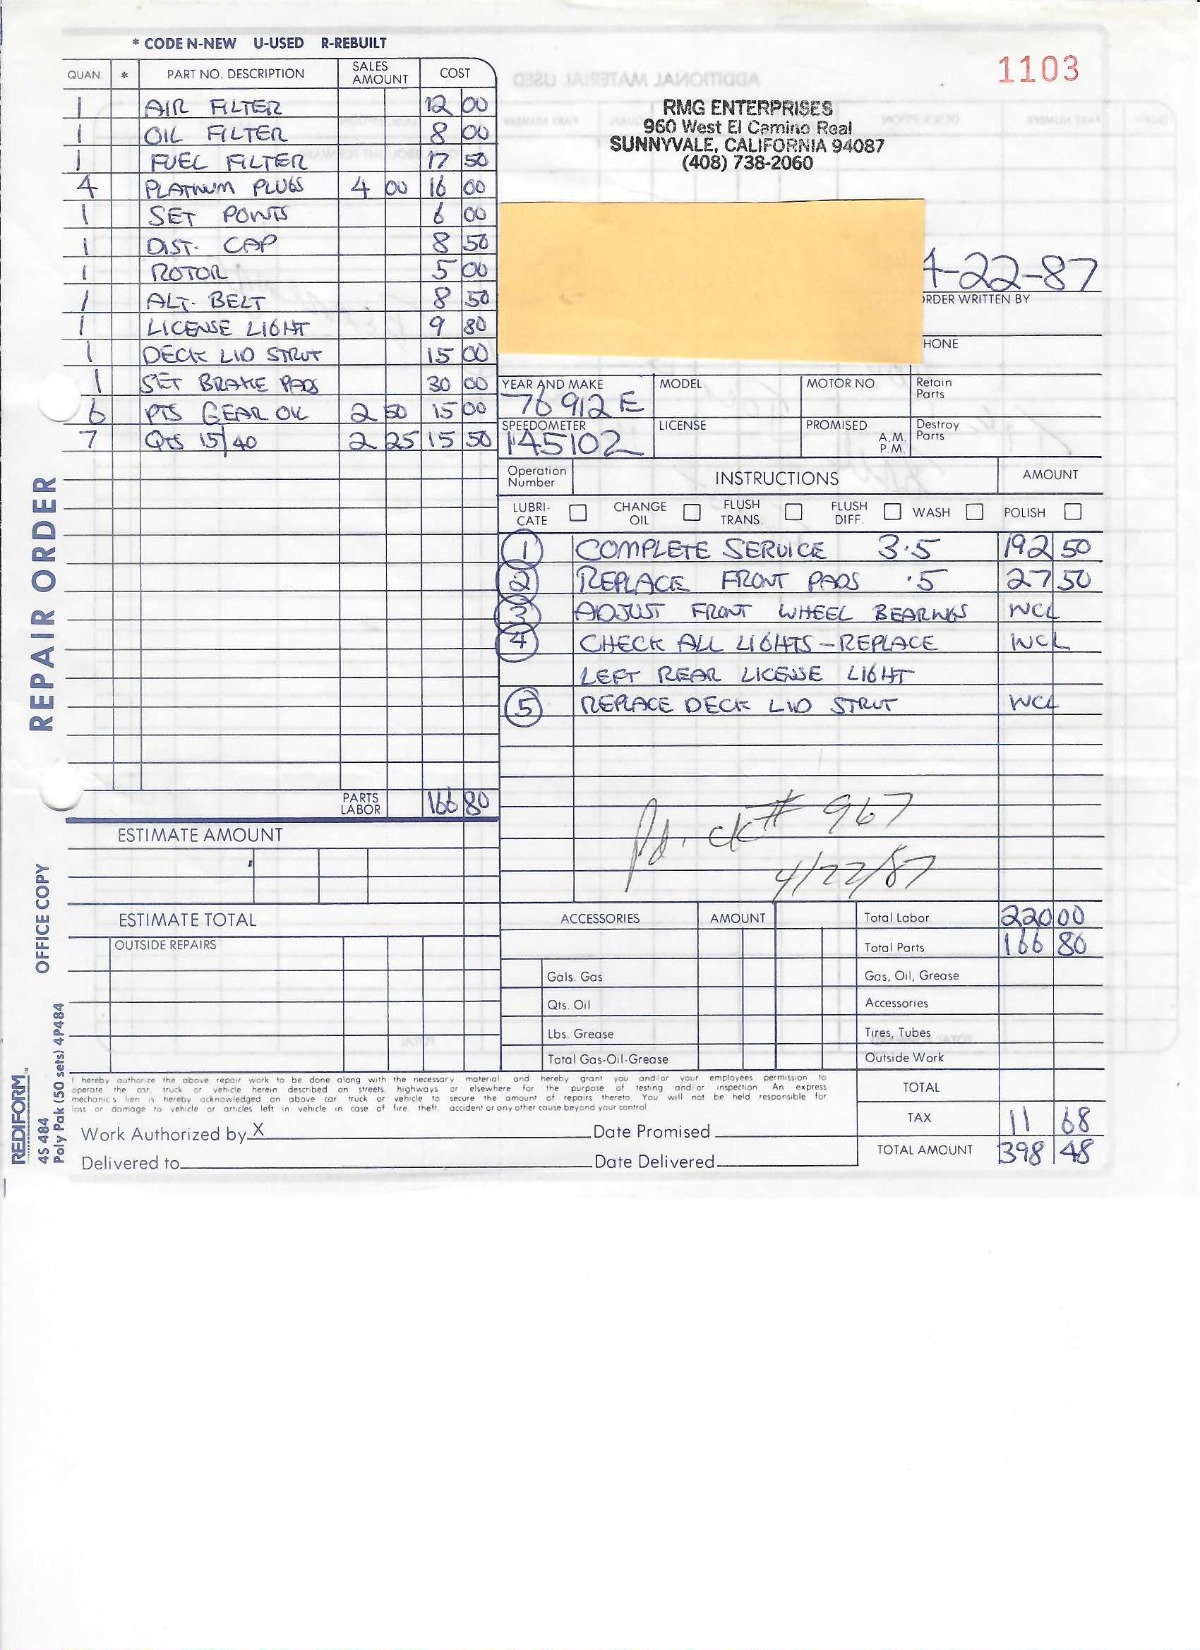 * CODE N-NEW U-USED R-REBUILT
QUAN. * PART NO. DESCRIPTION SALES AMOUNT COST
1 AIR FILTER 12 00
1 OIL FILTER 8 00
1 FUEL FILTER 17 50
4 PLATINUM PLUGS 4 00 16 00
1 SET POINTS 6 00
1 DIST. CAP 8 50
1 ROTOR 5 00
1 ALT. BELT 8 50
1 LICENSE LIGHT 9 80
1 DECK LID STRUT 15 00
1 SET BRAKE PADS 30 00
6 PTS GEAR OIL 2 50 15 00
7 Qts 15/40 2 25 15 50
PARTS LABOR 166 80
ESTIMATE AMOUNT
ESTIMATE TOTAL
OUTSIDE REPAIRS
REPAIR ORDER
OFFICE COPY
REDIFORM
4S 484
Poly Pak (50 sets) 4P484
1103
RMG ENTERPRISES
960 West El Camino Real
SUNNYVALE, CALIFORNIA 94087
(408) 738-2060
4-22-87
RDER WRITTEN BY
HONE
YEAR AND MAKE MODEL MOTOR NO. Retain Parts
76 912 E
SPEEDOMETER LICENSE PROMISED A.M. P.M. Destroy Parts
145102
Operation Number INSTRUCTIONS AMOUNT
LUBRI-CATE CHANGE OIL FLUSH TRANS. FLUSH DIFF. WASH POLISH
1 COMPLETE SERVICE 3.5 192 50
2 REPLACE FRONT PADS .5 27 50
3 ADJUST FRONT WHEEL BEARINGS WCL
4 CHECK ALL LIGHTS - REPLACE WCL
LEFT REAR LICENSE LIGHT
5 REPLACE DECK LID STRUT WCL
Pd. ck# 967
4/22/87
ACCESSORIES AMOUNT Total Labor 220 00
Total Parts 166 80
Gals. Gas Gas, Oil, Grease
Qts. Oil Accessories
Lbs. Grease Tires, Tubes
Total Gas-Oil-Grease Outside Work
I hereby authorize the above repair work to be done along with the necessary material, and hereby grant you and/or your employees permission to
operate the car, truck or vehicle herein described on streets, highways or elsewhere for the purpose of testing and/or inspection. An express
mechanic's lien is hereby acknowledged on above car, truck or vehicle to secure the amount of repairs thereto. You will not be held responsible for
loss or damage to vehicle or articles left in vehicle in case of fire, theft, accident or any other cause beyond your control.
TOTAL
TAX 11 68
TOTAL AMOUNT 398 48
Work Authorized by X Date Promised
Delivered to Date Delivered